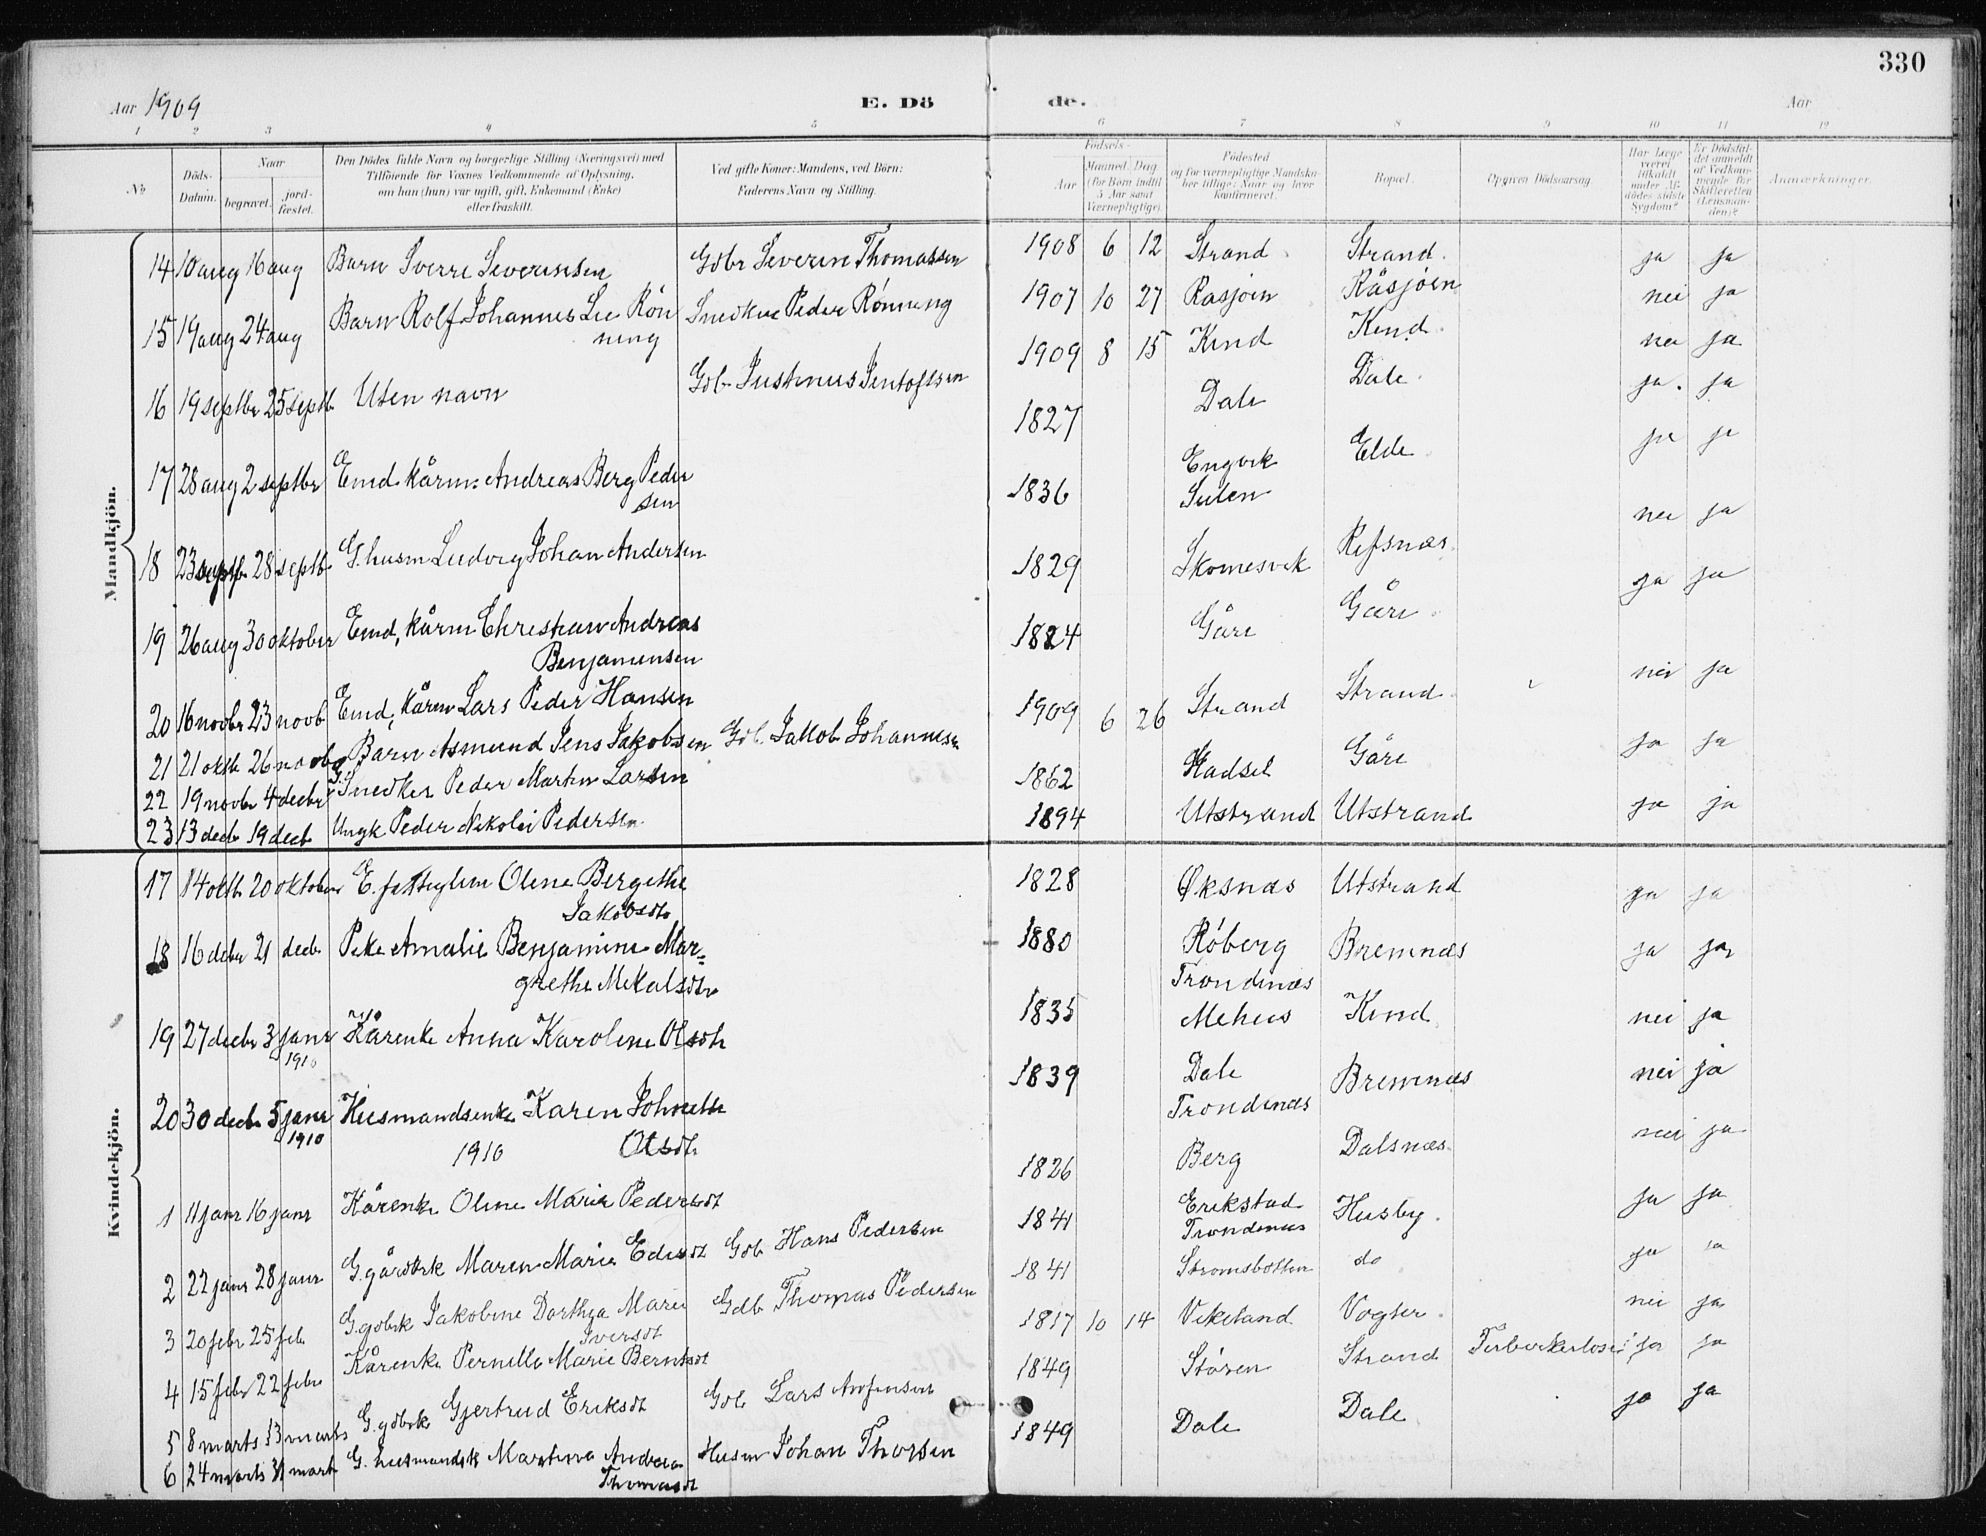 330
Aar 1909
E. Dö de.
Aar
1 2 3 4 5 6 7 8 9 10 11 12
No
Döds-Datum.
Naar
begravet.
jord-fæstet.
Den Dödes fulde Navn og borgerlige Stilling (Næringsvei) med
Tilföiende for Voxnes Vedkommende af Oplysning,
om han (hun) var ugift, gift, Enkemand (Enke)
eller fraskilt.
Ved gifte Koner: Mandens, ved Börn:
Faderens Navn og Stilling.
Födsels-
Aar
Maaned. Dag.
(for Börn indtil
5 Aar samt
Værnepligtige).
Födested
og for værnepligtige Mandska-
ber tillige: Naar og hvor
konfirmeret.
Bopæl.
Opgiven Dödsaarsag.
Har Læge
været
tilkaldt
under Af-
dödes sidste
Sygdom?
Er Dödsfal-
det anmeldt
af Vedkom-
mende for
Skifteretten
(Lensman-
den)?
Anmærkninger.
Mandkjön.
14 10 aug 16 aug Barn Sverre Severinsen Gdbr Severin Thomassen 1908 6 12 Strand Strand. ja ja
15 19 aug 24 aug Barn Rolf Johannes Lie Rön
ning Snedker Peder Rönning 1907 10 27 Rasjöen Råsjöen nei ja
16 19 septbr 25 septb Uten navn Gdb Justinus Jentoftsen 1909 8 15 Kind Kind. nei ja
17 28 aug 2 septbr Emd. kårm: Andreas Berg Peder
sen 1827 Dale Dale. ja. ja
18 23 septb. 28 septb. G. husm Ludvig Johan Andersen 1836 Engvik
Sulen Elde ja ja
19 26 aug 30 oktober Emd, kårm Christian Andreas
Benjaminsen 1829 Skomesvik Refsnæs. nei ja
20 16 novbr 23 novb Emd, kårm Lars Peder Hansen 1824 Gåre Gåre. ja ja
21 21 oktb 26 novb Barn Asmund Jens Jakobsen Gdb. Jakob Johannesen 1909 6 26 Strand Strand. nei ja
22 19 novbr 4 decbr G. Snedker Peder Martin Larsen 1862 Hadsel Gåre ja ja
23 13 decb 19 decb Ungk Peder Nikolai Pedersen 1894 Utstrand Utstrand ja ja
Kvindekjön.
17 14 oktb 20 oktober E. fattiglem Oline Bergethe
Jakobsdtr 1828 Øksnæs Utstrand ja ja
18 16 decbr 21 decb Pike Amalie Benjamine Mar=
grethe Mikalsdtr 1880 Röberg
Trondenæs Bremnæs ja ja
19 27 decbr 3 janr
1910 Kårenke Anna Karoline Olsdtr 1835 Mehus Kind nei ja
20 30 decb 5 janr
1910 Husmandsenke Karen Johnette
Olsdtr 1839 Dale
Trondenæs Bremnæs nei ja
1910
1 11 janr 16 janr Kårenke Oline Marie Pedersdt 1826 Berg Dalsnæs. nei ja
2 22 janr 28 janr G. gårdbrk Maren Marie Edisdt Gdb Hans Pedersen 1841 Erikstad
Trondenæs Husby. ja ja
3 20 febr 25 feb G. gdbrk Jakobine Dorthea Marie
Iversdt Gdb Thomas Pedersen 1841 Stromsbotten do ja ja
4 15 febr 22 febr Kårenke Pernille Marie Berntsdt 1817 10 14 Vikeland Vogter. nei ja
5 8 marts 13 marts G. gdbrk Gjertrud Eriksdt Gdb Lars Arnfinsen 1849 Stören Strand Tuberkulose ja ja
6 24 marts 31 mart G. husmandsk Martina Andrea
Thomasdt Husm Johan Thorsen 1849 Dale Dale ja ja